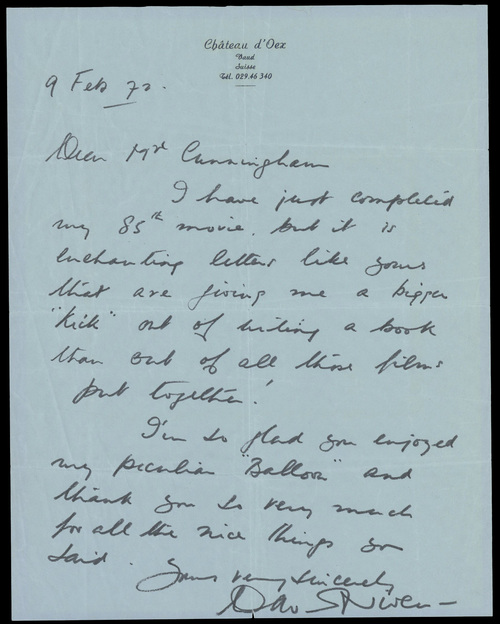 Château d'Oex
Vaud
Suisse
Tél. 029.46 340
9 Feb 72.
Dear Mrs Cunningham
I have just completed
my 85th movie, but it is
enchanting letters like yours
that are giving me a bigger
"Kick" out of writing a book
than out of all those films
put together!
I'm so glad you enjoyed
my peculiar "Balloon" and
thank you so very much
for all the nice things you
said.
Yours very sincerely
David Niven